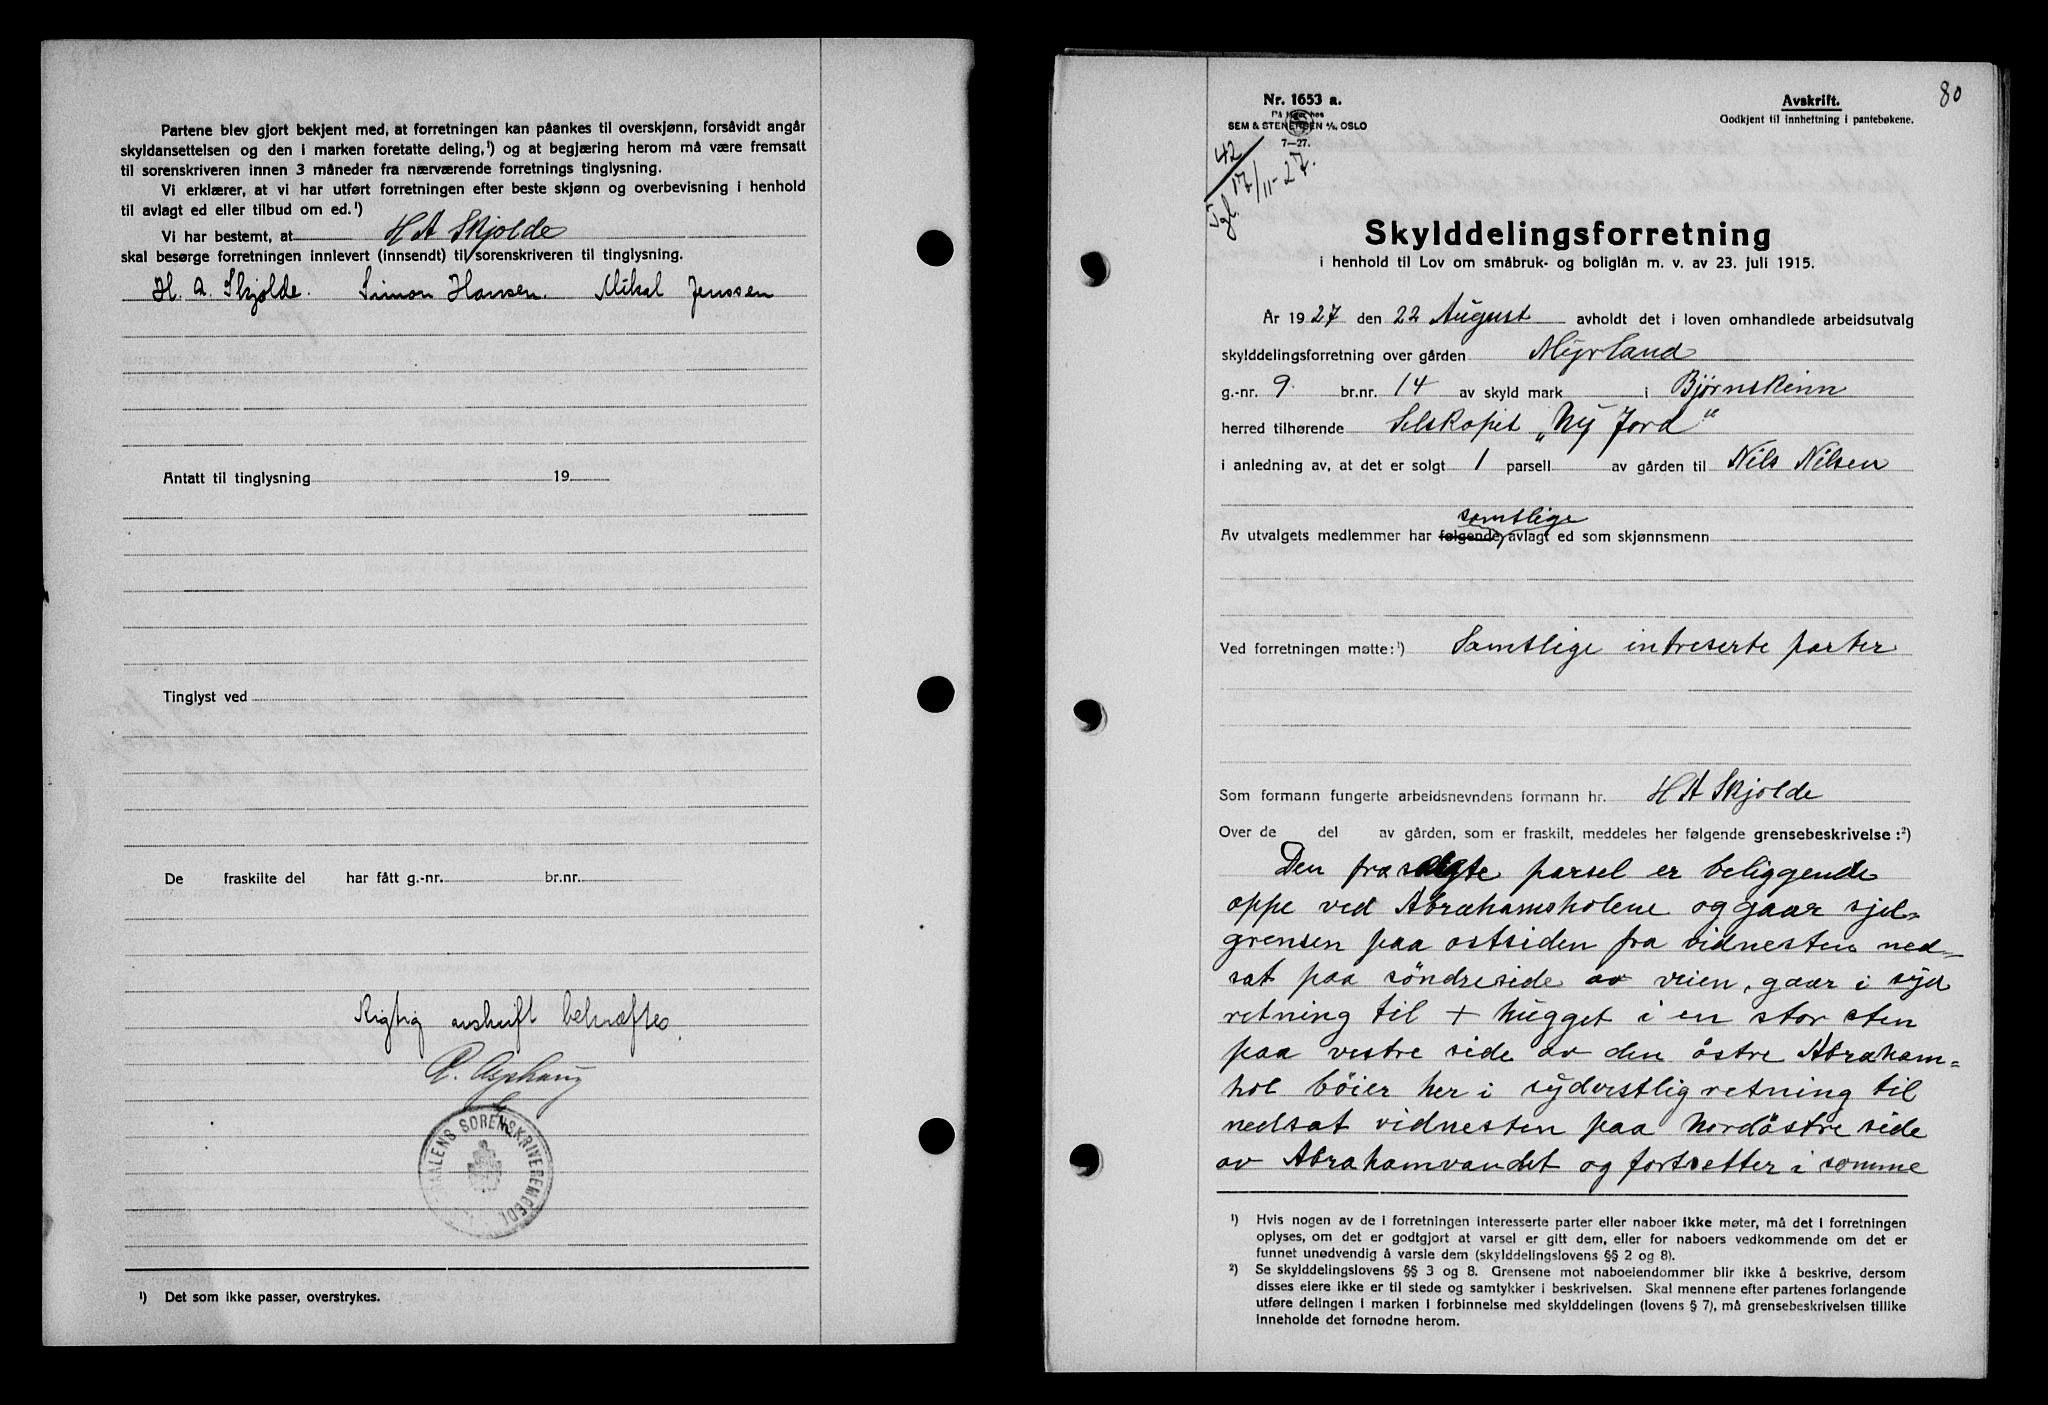 Partene blev gjort bekjent med, at forretningen kan påankes til overskjønn, forsåvidt angår
skyldansettelsen og den i marken foretatte deling,¹) og at begjæring herom må være fremsatt
til sorenskriveren innen 3 måneder fra nærværende forretnings tinglysning.
Vi erklærer, at vi har utført forretningen efter beste skjønn og overbevisning i henhold
til avlagt ed eller tilbud om ed.¹)
Vi har bestemt, at H A Skjolde
skal besørge forretningen innlevert (innsendt) til sorenskriveren til tinglysning.
H. A. Skjolde. Simon Hansen. Mikal Jenssen
Antatt til tinglysning 19
Tinglyst ved
De fraskilte del har fått g.-nr. br.nr.
Rigtig avskrift bekræftes.
SORENSKRIVEREMBEDE
¹) Det som ikke passer, overstrykes.
80
Nr. 1653 a.
Avskrift.
Godkjent til innheftning i pantebøkene.
SEM & STENERSEN A/S, OSLO
7—27.
42
Tgl. 17/11-27.
Skylddelingsforretning
i henhold til Lov om småbruk- og boliglån m. v. av 23. juli 1915.
År 1927 den 22 August avholdt det i loven omhandlede arbeidsutvalg
skylddelingsforretning over gården Myrland
g.-nr. 9. br.nr. 14 av skyld mark i Bjørnskinn
herred tilhørende Selskapet „Ny Jord“
i anledning av, at det er solgt 1 parsell av gården til Nils Nilsen
samtlige
Av utvalgets medlemmer har følgende avlagt ed som skjønnsmenn
Ved forretningen møtte:¹) Samtlige intreserte parter
Som formann fungerte arbeidsnevndens formann hr. H A Skjolde
Over de del av gården, som er fraskilt, meddeles her følgende grensebeskrivelse:²)
Den frasolgte parsel er beliggende
oppe ved Abrahamsholene og gaar sjel-
grensen paa ostsiden fra vidnesten ned-
sat paa söndre side av veien, gaar i syd
retning til + hugget i en stor sten
paa vestre side av den östre Abraham-
hol böier her i syderstlig retning til
nedsat vidnesten paa Nordöstre side
av Abrahamvandet og fortsetter i somme
¹) Hvis nogen av de i forretningen interesserte parter eller naboer ikke møter, må det i forretningen
oplyses, om det er godtgjort at varsel er gitt dem, eller for naboers vedkommende om det er
funnet unødvendig å varsle dem (skylddelingslovens §§ 2 og 8).
²) Se skylddelingslovens §§ 3 og 8. Grensene mot naboeiendommer blir ikke å beskrive, dersom
disses eiere ikke er til stede og samtykker i beskrivelsen. Skal mennene efter partenes forlangende
utføre delingen i marken i forbinnelse med skylddelingen (lovens § 7), må grensebeskrivelsen tillike
inneholde det fornødne herom.